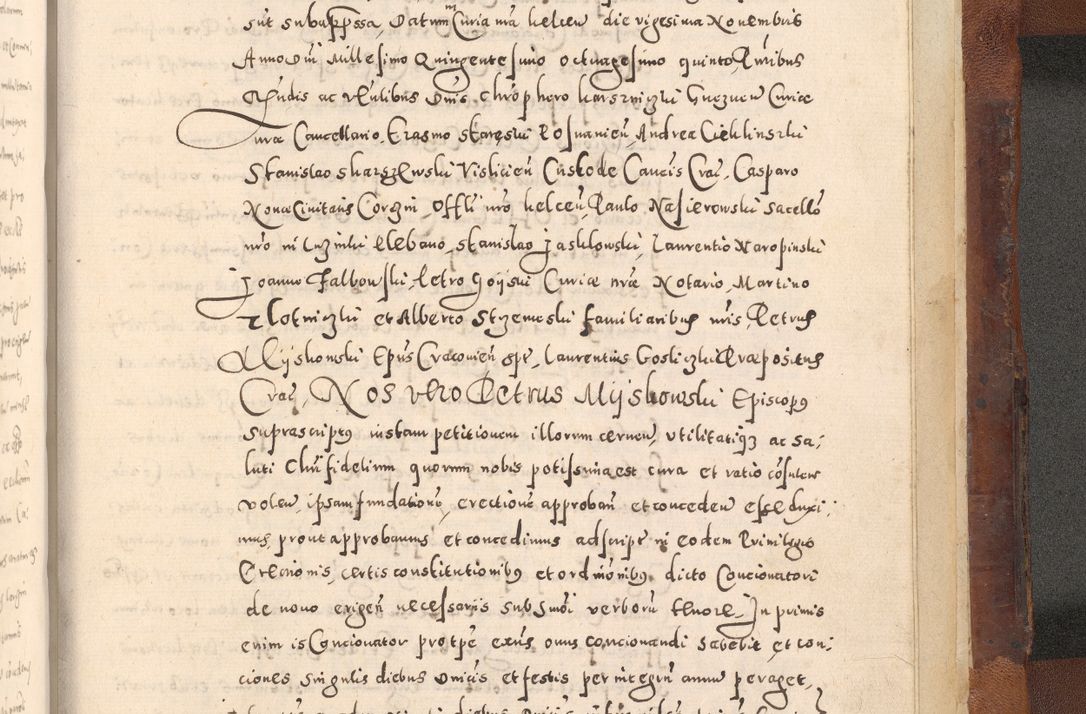 sut subappssa, Datum in Curia nra kelcen die vigesima Novembris
Anno Dni Millesimo Quingentesimo octuagesimo quinto, Pntibus
Rndis ac Vntlibus Dnis Chrophero karszniczki Gneznen Curiae
nrae Cancellario, Erasmo Starzeski Posnanien, Andrea Cieklinski
Stanislao Skarszewski Vislicien Custode Cancis Crac, Casparo
Novae Civitatis Corczin, Offli nro kelcen, Paulo Nasierowski sacello
nro ni Luzinki Plebano, Stanislao Jaskkowski, Laurentio Naropinski
Joanne Falbowski, Petro Goiiski Curiae nrae Notario, Martino
Zlotniczki et Alberto Strzemeski familiaribus nris, Petrus
Miiskowski Epus Cracovien spt, Laurentius Gosliczki Praepositus
Crac, Nos vero Petrus Miiskowski Episcopus
suprascriptus iustam petitionem illorum cernen, utilitatique ac sa-
luti Chri fidelium quorum nobis potissima est cura et ratio consulere
volen, ipsam fundatione, erectione approban et conceden esse duxi-
mus, prout approbamus et concedimus adscript in eodem Privilegio
Erectionis, certis constitutionibus et ordinonibus dicto Concionatori
de novo erigen necessariis sub Smoi verborum tenore, In primis
enim is Concionator pro tpe exns onus concionandi habebit, et con-
ciones singulis diebus Dnicis et festis per integrum annum peraget,